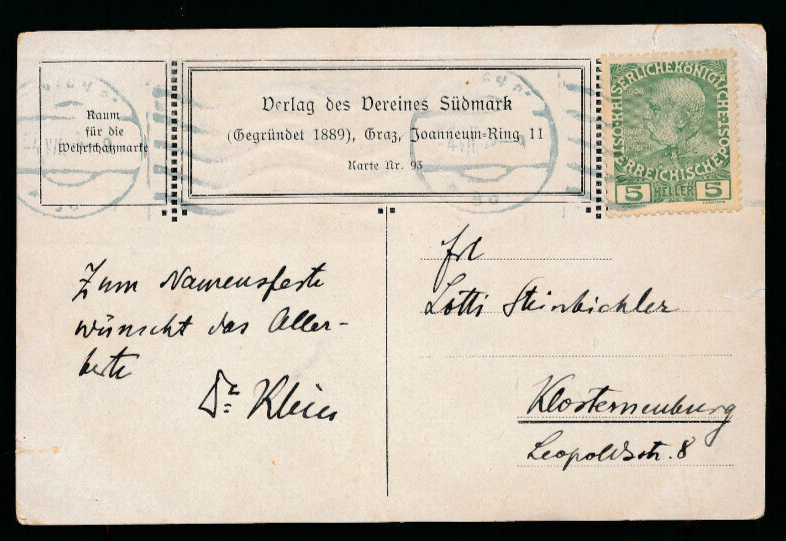 Raum
für die
Wehrschatzmarke
Verlag des Vereines Südmark
(Gegründet 1889), Graz, Joanneum-Ring 11
Karte Nr. 93
KAISERLICHE KÖNIGLICHE
ÖSTERREICHISCHE
5 HELLER 5
Zum Namensfeste
wünscht das Aller-
beste
Dr Klein
Frl
Lotti Steinbichler
Klosterneuburg
Leopoldstr. 8